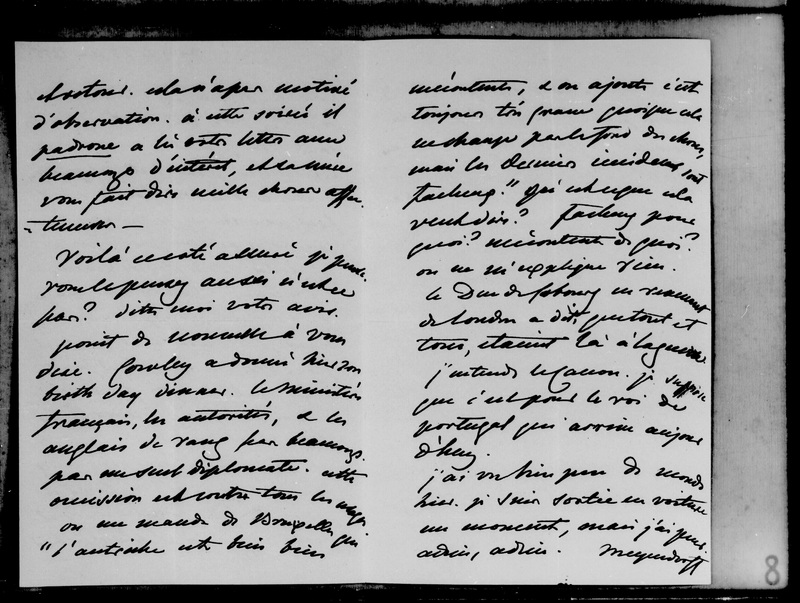 et retour. cela n'a pas motivé
d'observation. à cette soirée il
padrone a lu votre lettre avec
beaucoup d'intérêt, et sa mère
vous fait dire mille choses affec
-tueuses —
Voilà ce côté assuré je pense.
vous le pensez aussi n'est ce
pas? dites moi votre avis.
point de nouvelle à vous
dire. Cowley a donné hier son
birth day dinner. le ministère
français, les autorités, & les
anglais de rang pas beaucoup.
pas un seul diplomate. cette
omission est contre tous les usages.
on me mande de Bruxelles que
"l'autriche est bien bien
mécontente, & on ajoute c'est
toujours très grave quoique cela
ne change pas le fond des choses,
mais les derniers incidens sont
facheux." qu'est ce que cela
veut dire? facheux pour
quoi? mécontente de quoi?
on ne m'explique rien.
le Duc de Cobourg en revenant
de Londres a dit partout et
tous, étaient là à la guerre.
j'entends le Canon. je suppose
que c'est pour le roi de
portugal qui arrive aujour
d'huy.
j'ai vu bien peu de monde
hier. je suis sortie en voiture
un moment, mais j'ai peur.
adieu, adieu. Meyendorff
8